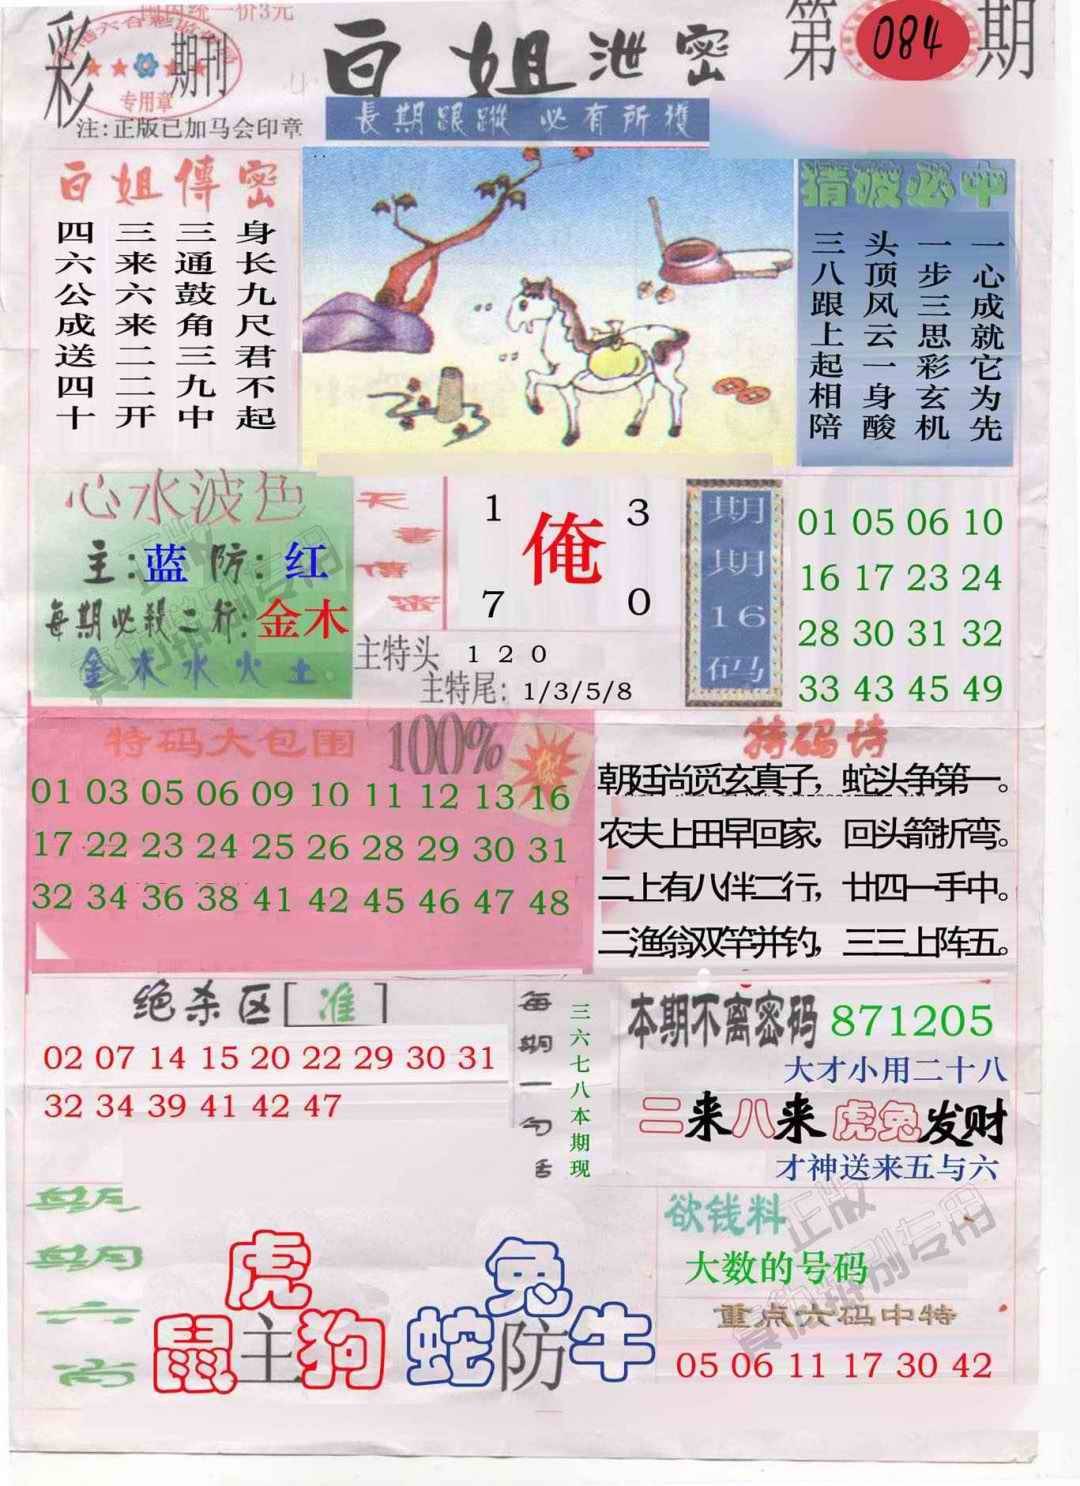 国统一价3元
彩 期刊
专用章
注:正版已加马会印章
白姐泄密
第084期
長期跟蹤 必有所獲
白姐傳密
身长九尺君不起
三通鼓角三九中
三来六来二二开
四六公成送四十
猜破必中
一心成就它为先
一步三思彩玄机
头顶风云一身酸
三八跟上起相陪
心水波色
主:蓝 防:红
每期必殺二行:金木
金木水火土
天書傳密
1 3
俺
7 0
主特头 1 2 0
主特尾: 1/3/5/8
期期16码
01 05 06 10
16 17 23 24
28 30 31 32
33 43 45 49
特码大包围 100%
01 03 05 06 09 10 11 12 13 16
17 22 23 24 25 26 28 29 30 31
32 34 36 38 41 42 45 46 47 48
特码诗
朝廷尚觅玄真子，蛇头争第一。
农夫上田早回家，回头箭折弯。
二上有八伴二行，廿四一手中。
二渔翁双竿并钓，三三上阵五。
绝杀区[准]
02 07 14 15 20 22 29 30 31
32 34 39 41 42 47
每期一句
三六七八本期现
本期不离密码 871205
大才小用二十八
二来八来 虎兔发财
才神送来五与六
期期六肖
虎
鼠主狗
兔
蛇防牛
欲钱料
大数的号码
重点六码中特
05 06 11 17 30 42